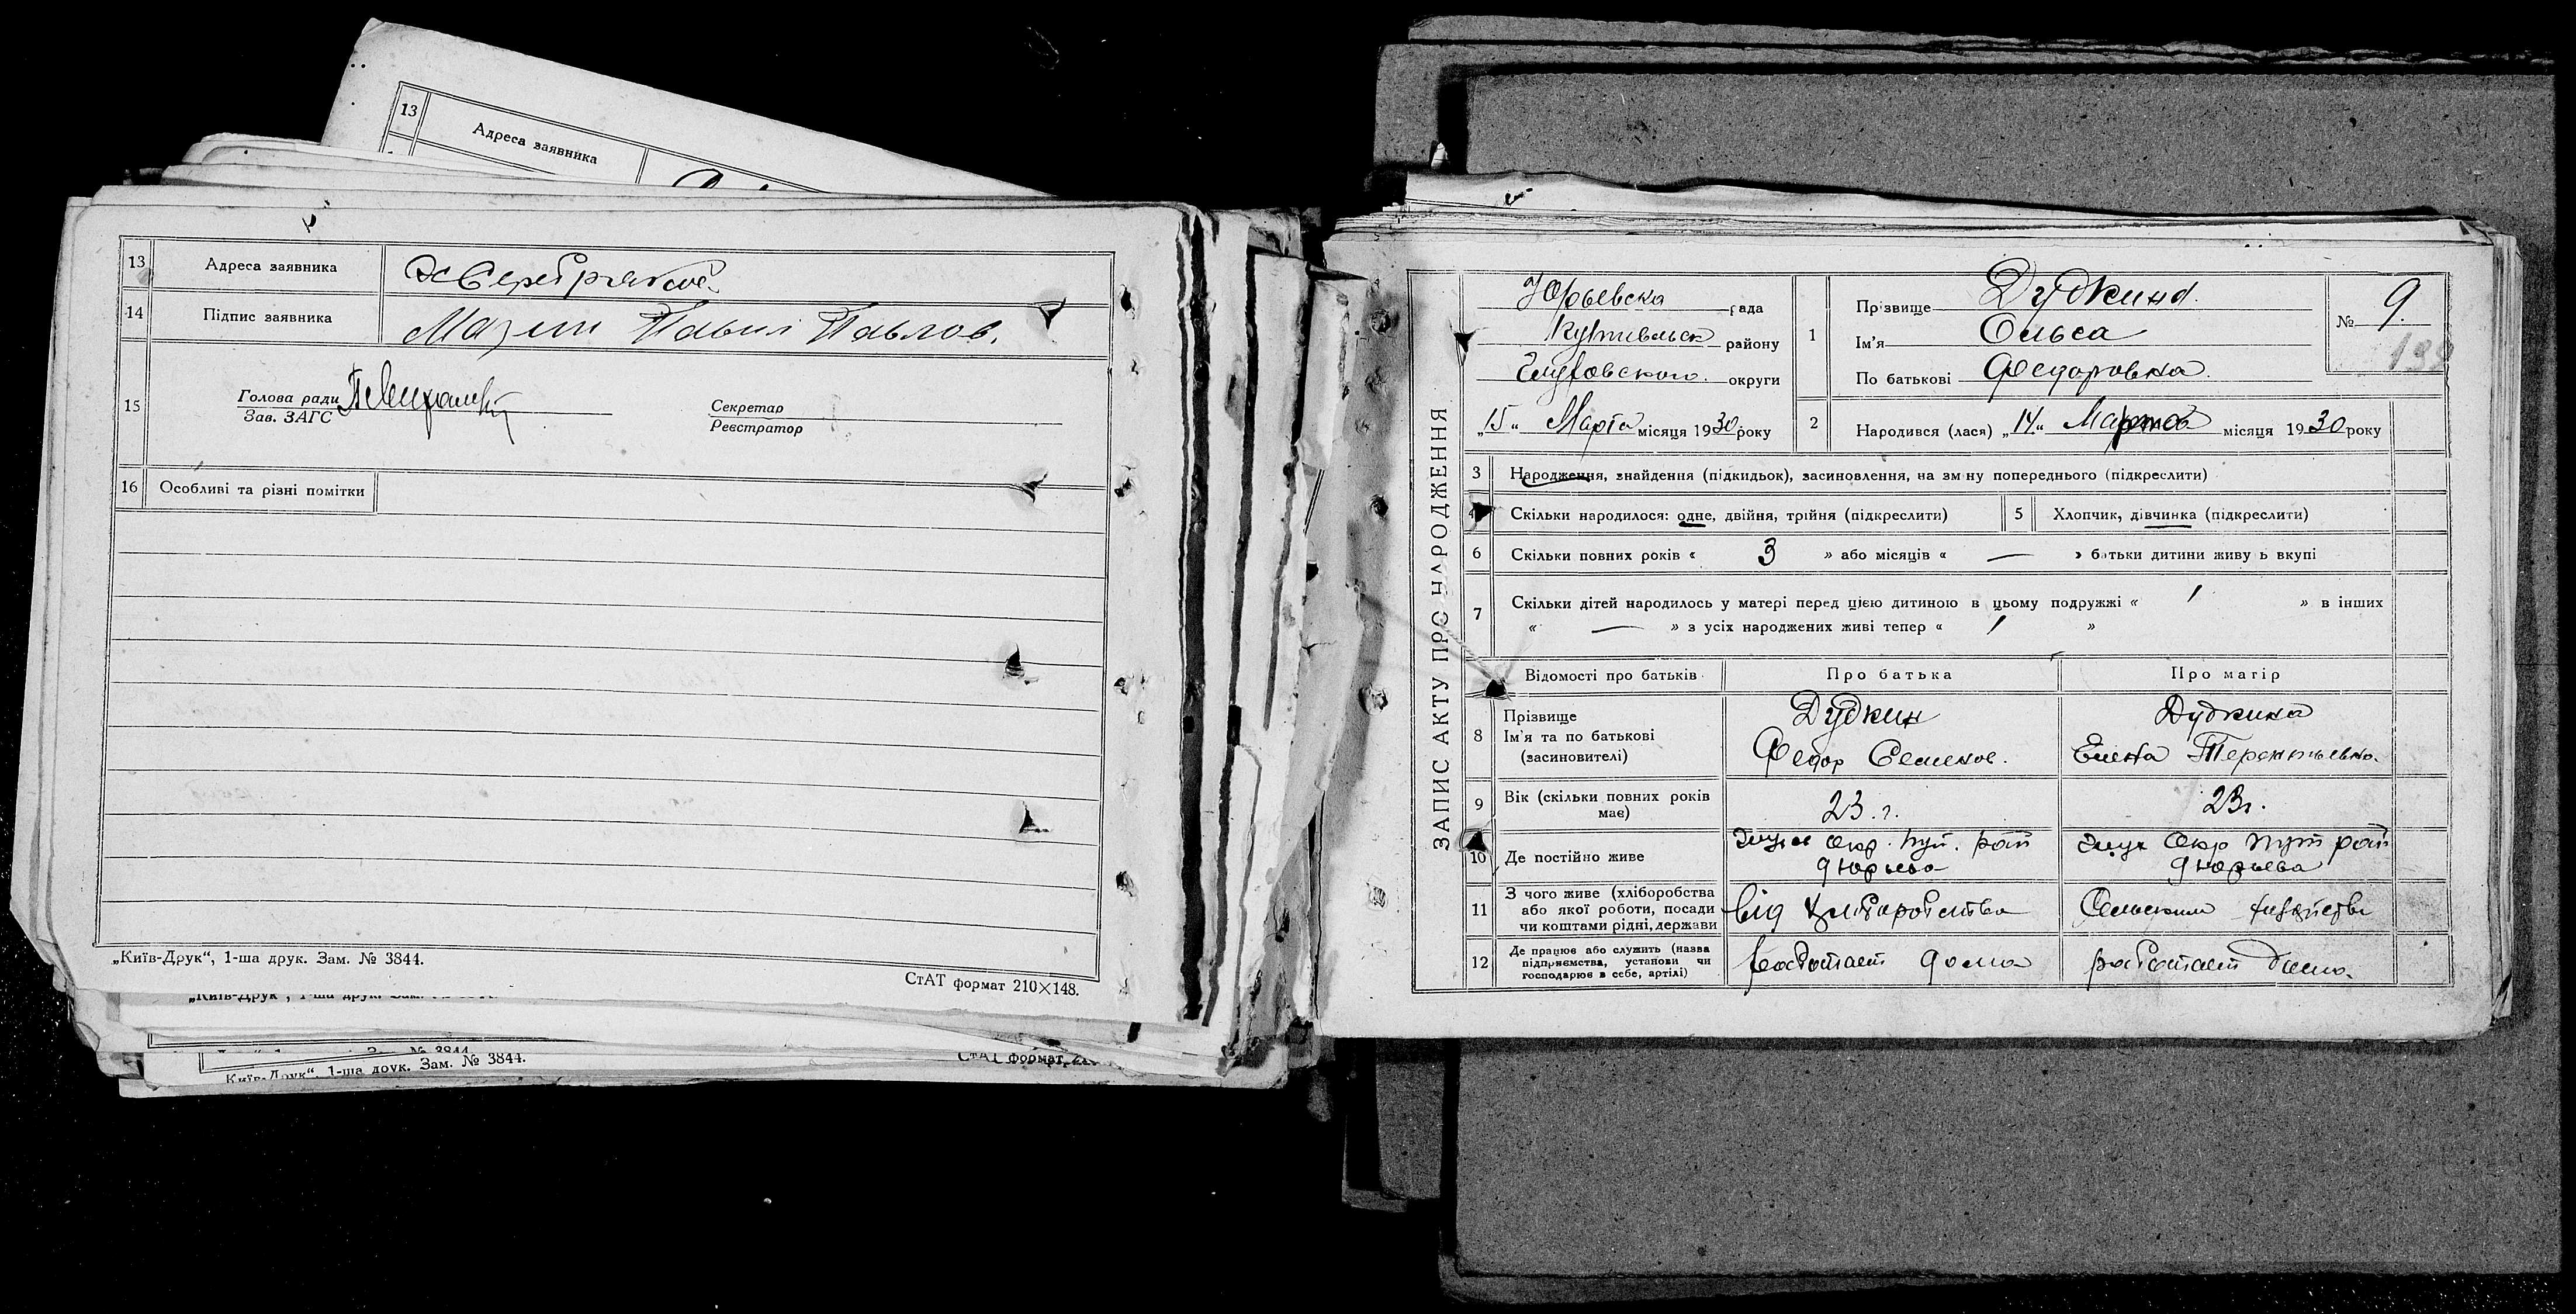 13 Адреса заявника
13 Адреса заявника
14 Підпис заявника Мазин Павил Павлов.
15 Голова ради
Зав. ЗАГС
Секретар
Реєстратор
16 Особливі та різні помітки
„Київ-Друк“, 1-ша друк. Зам. № 3844.
СтАТ формат 210×148.
„Київ-Друк“, 1-ша друк. Зам. № 3844.
СтАТ формат
ЗАПИС АКТУ ПРО НАРОДЖЕННЯ
Юрьевска рада
Путивльск району
Глуховского округи
„15“ Марта місяця 1930 року
1 Прізвище Дудкина
Ім'я Ольга
По батькові Федоровна
№ 9
2 Народився (лася) „14“ Марта місяця 1930 року
3 Народження, знайдення (підкидьок), засиновлення, на зміну попереднього (підкреслити)
4 Скільки народилося: одне, двійня, трійня (підкреслити) 5 Хлопчик, дівчинка (підкреслити)
6 Скільки повних років « 3 » або місяців « — » батьки дитини живуть вкупі
7 Скільки дітей народилось у матері перед цією дитиною в цьому подружжі « 1 » в інших
« — » з усіх народжених живі тепер « 1 »
Відомості про батьків Про батька Про матір
8 Прізвище
Ім'я та по батькові
(засиновителі)
Дудкин
Федор Семенов.
Дудкина
Елена Терентьевна.
9 Вік (скільки повних років
має)
23. г. 23г.
10 Де постійно живе
Глух Окр. Пут. рай
д Юрьева
Глух Окр Пут рай
д Юрьева
11 З чого живе (хліборобства
або якої роботи, посади
чи коштами рідні, держави
від хліборобства
Сельским
12 Де працює або служить (назва
підприємства, установи чи
господарює в себе, артілі)
работает дома
работает дома.